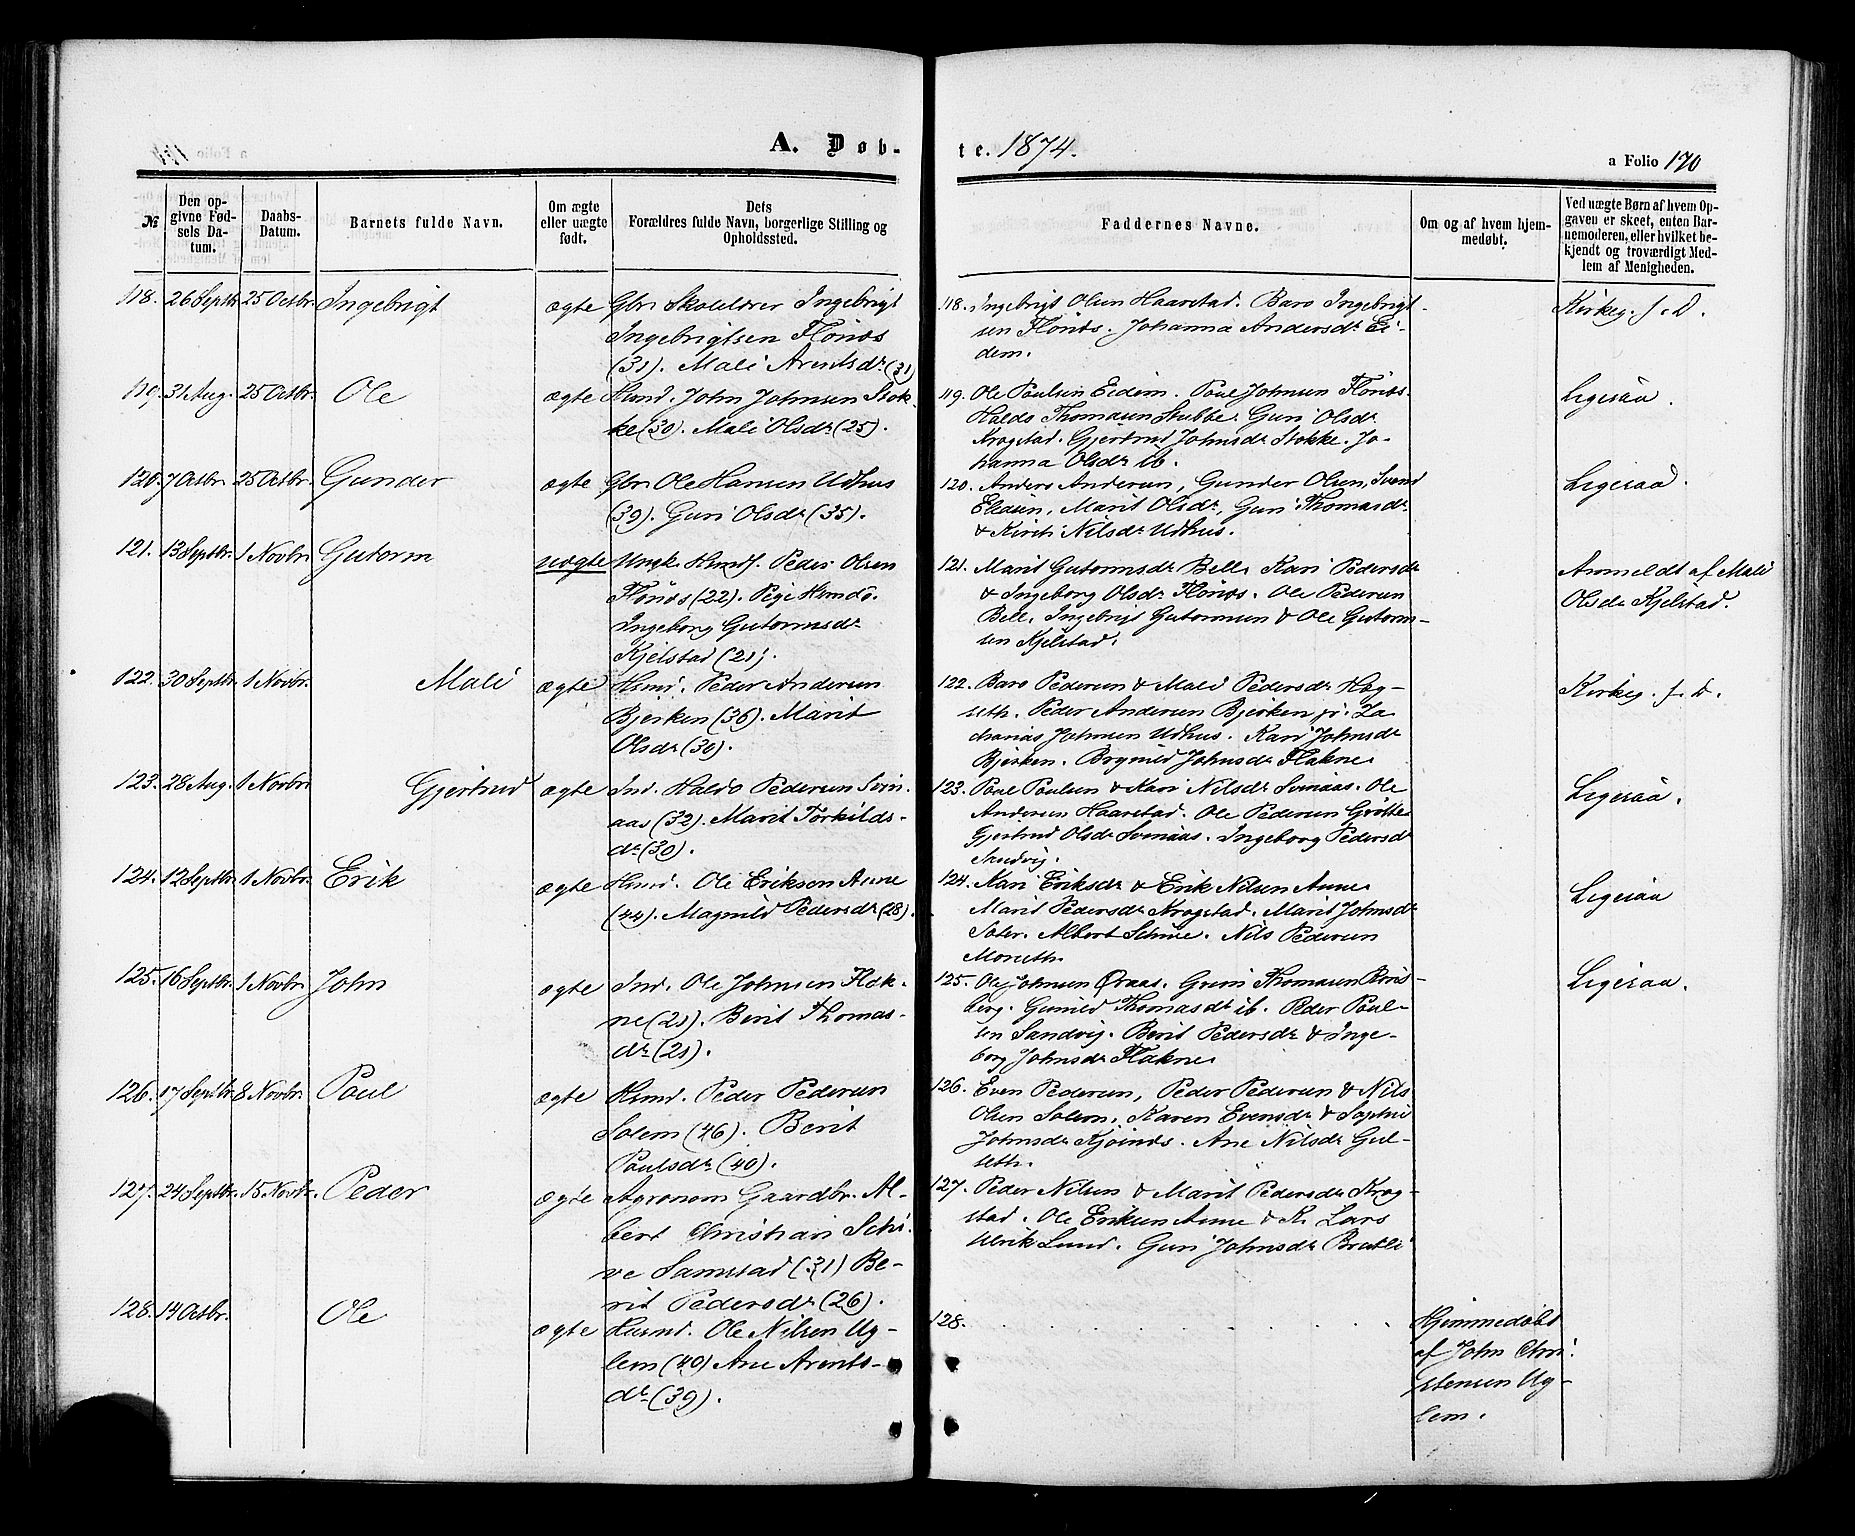 A. Døb-
te. 1874.
a Folio 170
№
Den op-
givne Fød-
sels Da-
tum.
Daabs-
Datum.
Barnets fulde Navn.
Om ægte
eller uægte
født.
Dets
Forældres fulde Navn, borgerlige Stilling og
Opholdssted.
Faddernes Navne.
Om og af hvem hjem-
medøbt.
Ved uægte Børn af hvem Op-
gaven er skeet, enten Bar-
nemoderen, eller hvilket be-
kjendt og troværdigt Med-
lem af Menigheden.
118. 26 Septbr. 25 Octbr. Ingebrigt ægte Gbr. Skolelærer Ingebrigt
Ingebrigtsen Flønæs
(31). Mali Arentsdr (31)
118. Ingebrigt Olsen Haarstad. Baro Ingebrigt-
sen Flønæs. Johanna Andersdr Ei-
dem.
Kirkeg. f. D.
119. 31 Aug. 25 Octbr. Ole ægte Husmd. John Johnsen Stok-
ke (30). Mali Olsdr (25).
119. Ole Paulsen Eidem. Poul Johnsen Flønæs.
Haldo Thomasen Stubbe. Guri Olsdr
Kragstad. Gjertrud Johnsdr Stokke. Jo-
hanna Olsdr ib.
Ligesaa.
120. 7 Octbr. 25 Octbr. Gunder ægte Gbr. Ole Hansen Udhus
(39). Guri Olsdr (35).
120. Anders Andersen, Gunder Olsen, Svend
Eliasen, Marit Olsdr, Guri Thomasdr
& Kirsti Nilsdr Udhus.
Ligesaa.
121. 13 Septbr. 1 Novbr. Gutorm uægte Ungk. Hsmdf. Peder Olsen
Flønæs (22). Pige Hsmdd.
Ingeborg Gutormsdr
Kjelstad (21).
121. Marit Gutormsdr Bell. Kari Pedersdr
& Ingeborg Olsdr Flønæs. Ole Pedersen
Bell. Ingebrigt Gutormsen & Ole Gutorm-
sen Kjelstad.
Anmeldt af Mali
Olsdr Kjelstad.
122. 30 Septbr. 1 Novbr. Mali ægte Hsmd. Peder Andersen
Bjerken (36). Marit
Olsdr (30).
122. Baro Pedersen & Mali Pedersdr Hog-
seth. Peder Andersen Bjerken jr. Za-
charias Johnsen Udhus. Kari Johnsdr
Bjerken. Brynild Johnsdr Flakne.
Kirkeg. f. D.
123. 28 Aug. 1 Novbr. Gjertrud ægte Ind. Haldo Pedersen Svin-
aas (32). Marit Torkilds-
dr (30).
123. Paul Paulsen & Kari Nilsdr Svinaas. Ole
Andersen Haarstad. Ole Pedersen Grøtte.
Gjertrud Olsdr Svinaas. Ingeborg Pedersdr
Sandvig.
Ligesaa.
124. 12 Septbr. 1 Novbr. Erik ægte Hsmd. Ole Eriksen Aune
(44). Magnild Pedersdr (28).
124. Kari Eriksdr & Erik Nilsen Aune.
Marit Pedersdr Kragstad. Marit Johnsdr
Sæter. Albert Schive. Nils Pedersen
Moseth.
Ligesaa
125. 16 Septbr. 1 Novbr. John ægte Ind. Ole Johnsen Flak-
ne (21). Berit Thomas-
dr (21).
125. Ole Johnsen Øraas. Thomasen
berg. Gunild Thomasdr ib. Peder Poul-
sen Sandvig. Berit Pedersdr & Inge-
borg Johnsdr Flakne.
Ligesaa.
126. 17 Septbr. 8 Novbr. Poul ægte Hsmd. Peder Pedersen
Solem (46). Berit
Poulsdr (40).
126. Even Pedersen, Peder Pedersen & Nils
Olsen Solem. Karen Evensdr & Sophie
Johnsdr Kjøsnæs. Ane Nilsdr Gul-
seth.
127. 24 Septbr. 15 Novbr. Peder ægte Agronom Gaardbr. Al-
bert Christian Schi-
ve Samstad (31) Be-
rit Pedersdr (26).
127. Peder Nilsen & Marit Pedersdr Krog-
stad. Ole Eriksen Aune & K. Lars
Ulrik Lund. Guri Johnsdr Bratli
128. 14 Octbr. Ole ægte Husmd. Ole Nilsen Ug-
lem (40) Ane Arents-
dr (39).
128.
Hjemmedøbt
af John Chri-
stensen Ug-
lem.